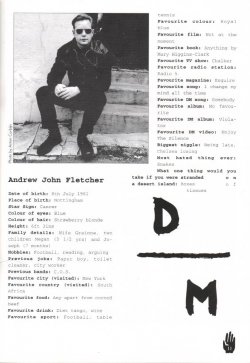 Andrew John Fletcher
Date of birth: 8th July 1961
Place of birth: Nottingham
Star Sign: Cancer
Colour of eyes: Blue
Color of hair: Strawberry blonde
Height: 6ft 3ins
Family details: Wife Grainne, two
children Megan (3 1/2 yrs) and Joseph
(7 months)
Hobbies: Football, reading, arguing
Previous jobs: Paper boy, toilet
cleaner, city worker
Previous bands: C.O.S.
Favourite city (visited): New York
Favourite country (visited): South
Africa
Favourite food: Any apart from corned
beef
Favourite drink: Dims tango, wine
Favourite sport: Football, table
tennis
Favourite colour: Royal
Blue
Favourite film: Not at the
moment
Favourite book: Anything by
Mary Higgins-Clark
Favourite TV show: Chaiker
Favourite radio station:
Radio 5
Favourite magazine: Esquire
Favourite song: I change my
mind all the time
Favourite DM song: Somebody
Favourite album: No favourite
Favourite DM album: Violator
Favourite DM video: Enjoy
The Silence
Biggest niggle: Being late,
Chelsea losing
Most hated thing ever:
Snakes
What one thing would you
take if you were stranded on
a desert island: Boxes of
tissues
D
M